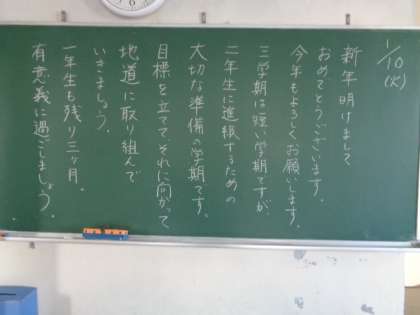 1/10(火)
新年明けまして
おめでとうございます。
今年もよろしくお願いします。
三学期は短い学期ですが、
二年生に進級するための
大切な準備の学期です。
目標を立ててそれに向かって
地道に取り組んで
いきましょう。
一年生も残り三ヶ月。
有意義に過ごしましょう。